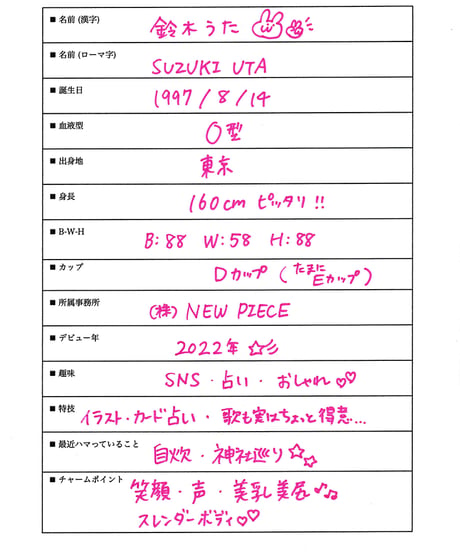 ■ 名前 (漢字)
鈴木うた
■ 名前 (ローマ字)
SUZUKI UTA
■ 誕生日
1997/8/14
■ 血液型
O型
■ 出身地
東京
■ 身長
160cm ピッタリ!!
■ B-W-H
B:88 W:58 H:88
■ カップ
Dカップ (たまにEカップ)
■ 所属事務所
(株) NEW PIECE
■ デビュー年
2022年☆彡
■ 趣味
SNS・占い・おしゃれ♡♡
■ 特技
イラスト・カード占い・歌も実はちょっと得意...
■ 最近ハマっていること
自炊・神社巡り☆☆
■ チャームポイント
笑顔・声・美乳美尻♪♫
スレンダーボディ♡♡